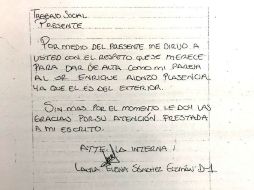 TRABAJO SOCIAL
PRESENTE
POR MEDIO DEL PRESENTE ME DIRIJO A
USTED CON EL RESPETO QUE SE MERECE
PARA DAR DE ALTA COMO MI PAREJA
AL SR ENRIQUE ALONZO PLASENCIA
YA QUE ES DEL EXTERIOR.
SIN MAS POR EL MOMENTO LE DOY LAS
GRACIAS POR SU ATENCIÓN PRESTADA
A MI ESCRITO.
ATTE. LA INTERNA!
LAURA ELENA SÁNCHEZ GUZMÁN D-1